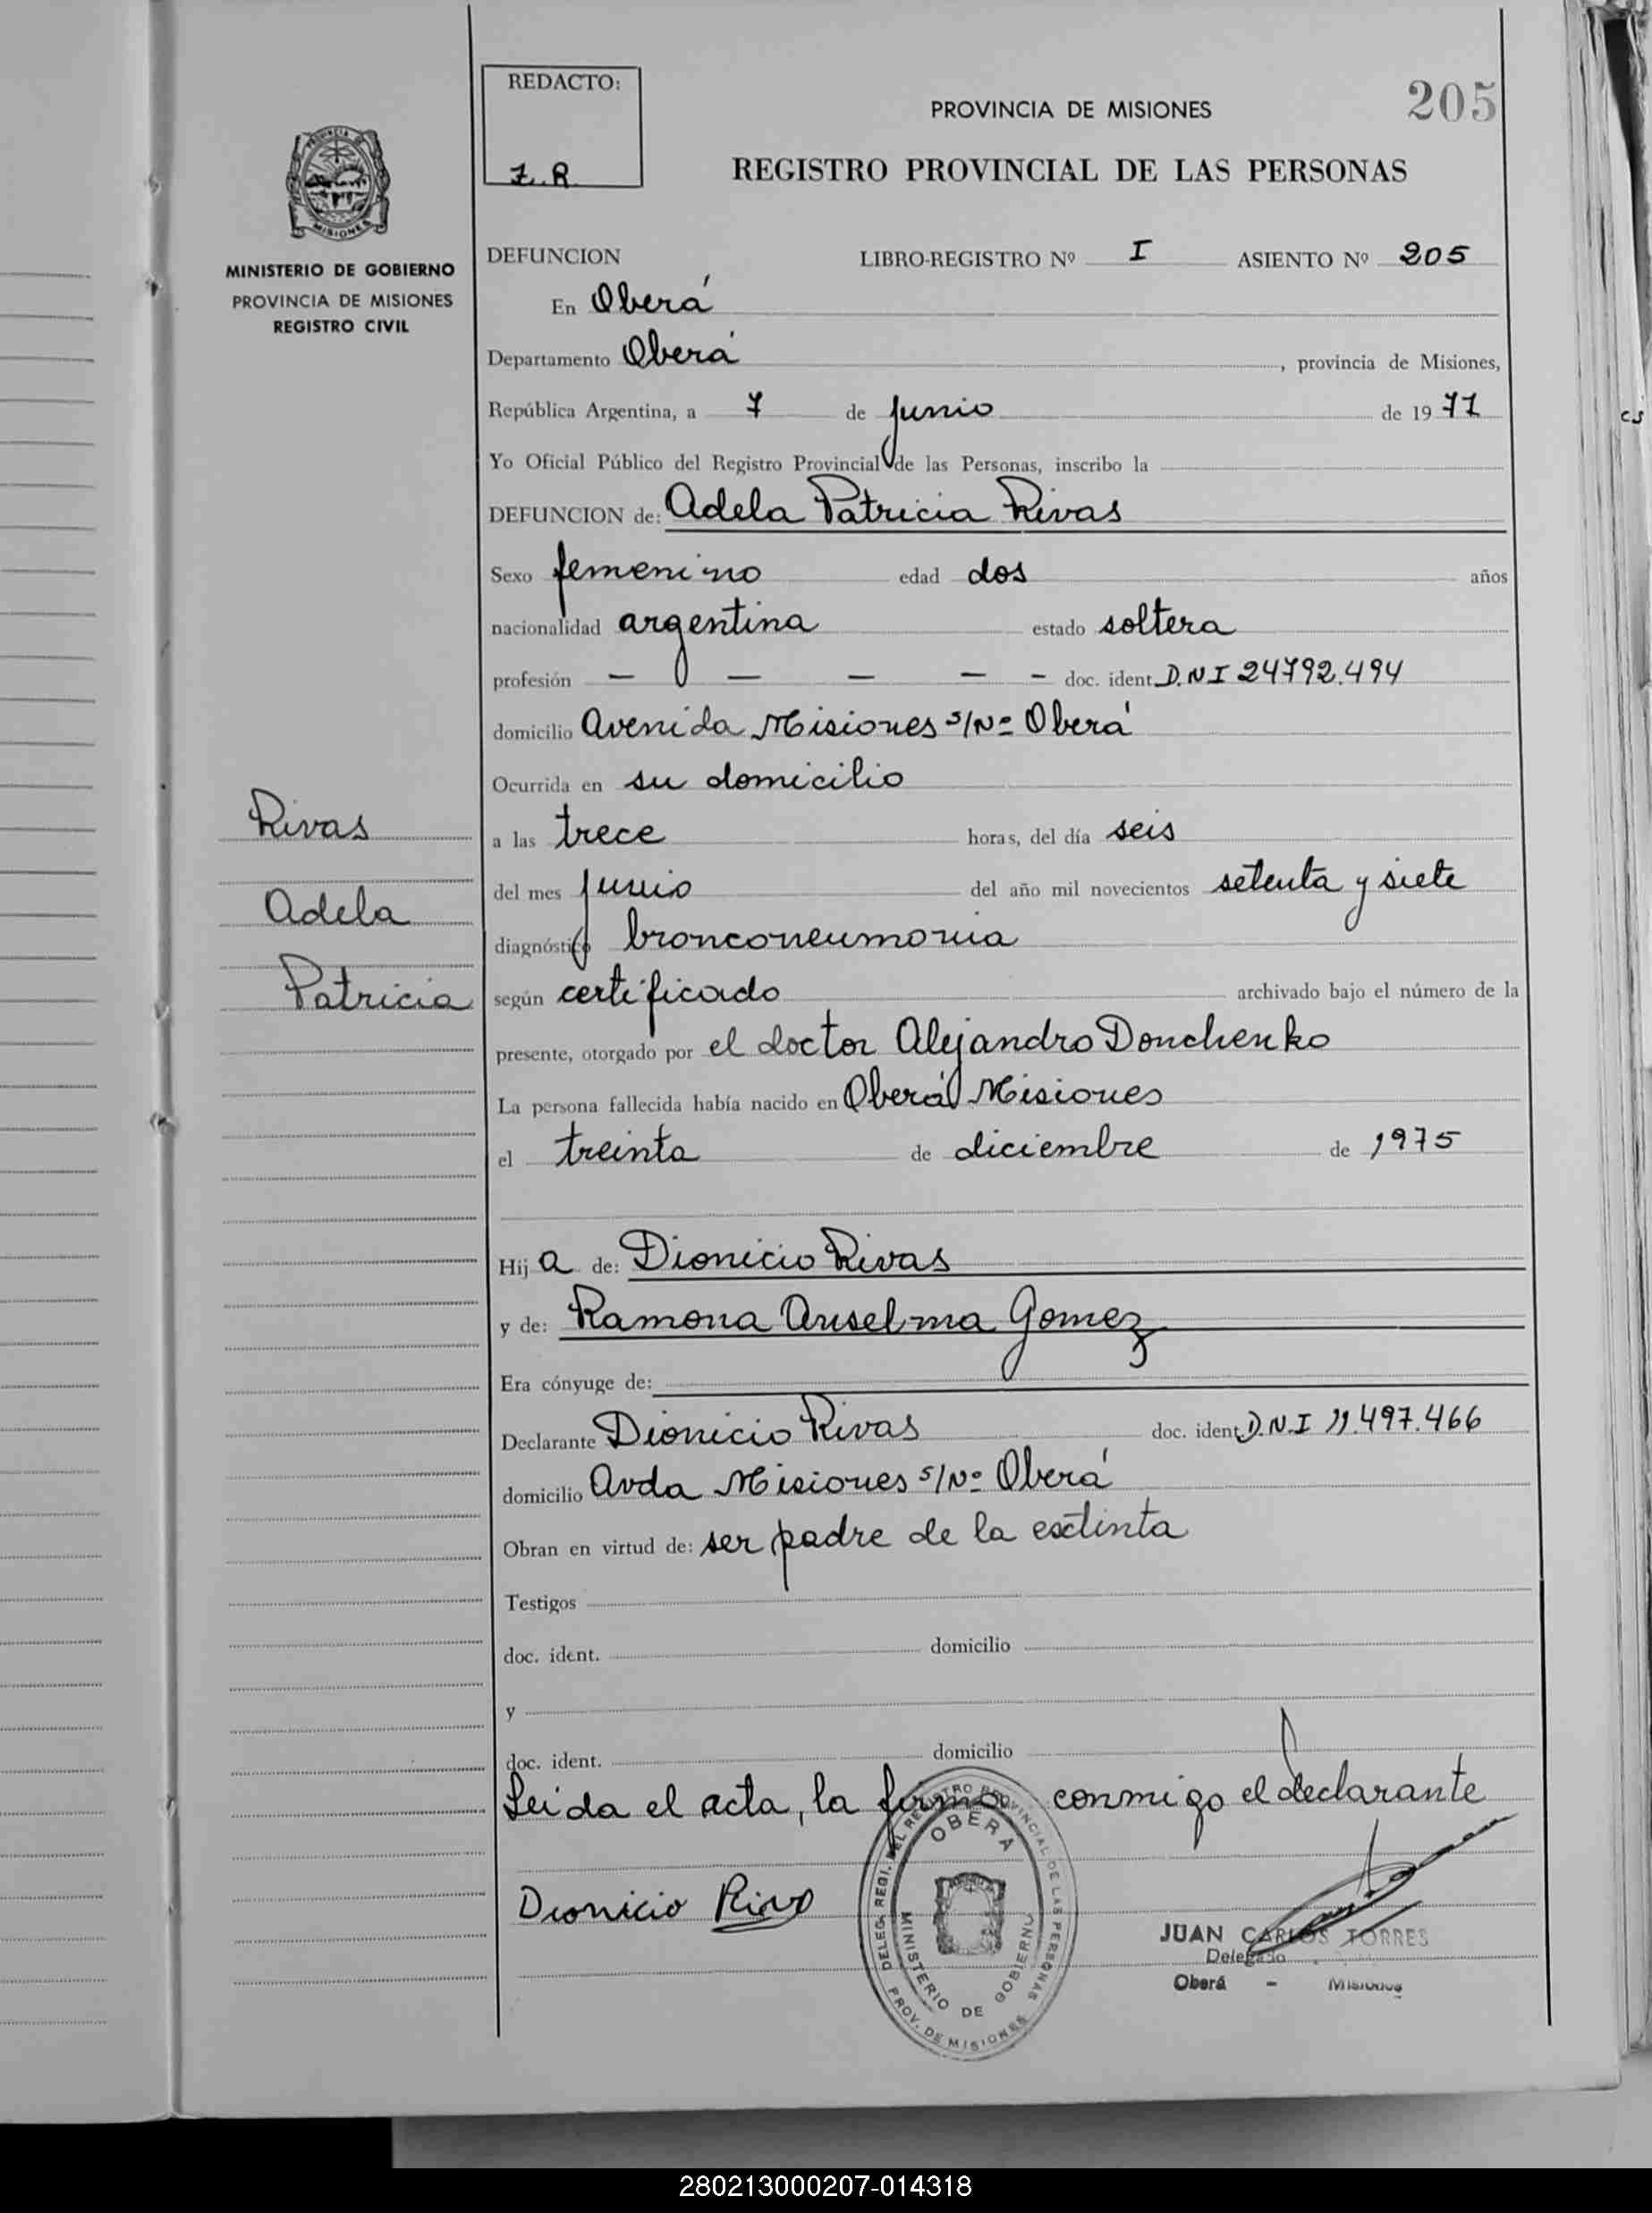 REDACTO:
Z.R
205
PROVINCIA DE MISIONES
REGISTRO PROVINCIAL DE LAS PERSONAS
MINISTERIO DE GOBIERNO
PROVINCIA DE MISIONES
REGISTRO CIVIL
DEFUNCION LIBRO-REGISTRO Nº I ASIENTO Nº 205
En Oberá
Departamento Oberá, provincia de Misiones,
República Argentina, a 7 de junio de 1977
Yo Oficial Público del Registro Provincial de las Personas, inscribo la
DEFUNCION de: Adela Patricia Rivas
Sexo femenino edad dos años
nacionalidad argentina estado soltera
profesión — — — — - doc. ident. D.N I 24792.494
domicilio Avenida Misiones s/Nº Oberá
Ocurrida en su domicilio
a las trece horas, del día seis
del mes junio del año mil novecientos setenta y siete
diagnóstico bronconeumonia
según certificado archivado bajo el número de la
presente, otorgado por el doctor Alejandro Donchenko
La persona fallecida había nacido en Oberá Misiones
el treinta de diciembre de 1975
Rivas
Adela
Patricia
Hija de: Dionicio Rivas
y de: Ramona Anselma Gomez
Era cónyuge de:
Declarante Dionicio Rivas doc. ident. D.N.I 11.497.466
domicilio Avda Misiones s/Nº Oberá
Obran en virtud de: ser padre de la extinta
Testigos
doc. ident. domicilio
y
doc. ident. domicilio
Leida el acta, la firma conmigo el declarante
Dionicio Rivas
DELEG. REGI. DEL REGISTRO PROVINCIAL DE LAS PERSONAS
OBERA
MINISTERIO DE GOBIERNO
PROV. DE MISIONES
JUAN CARLOS TORRES
Delegado
Oberá - Misiones
280213000207-014318